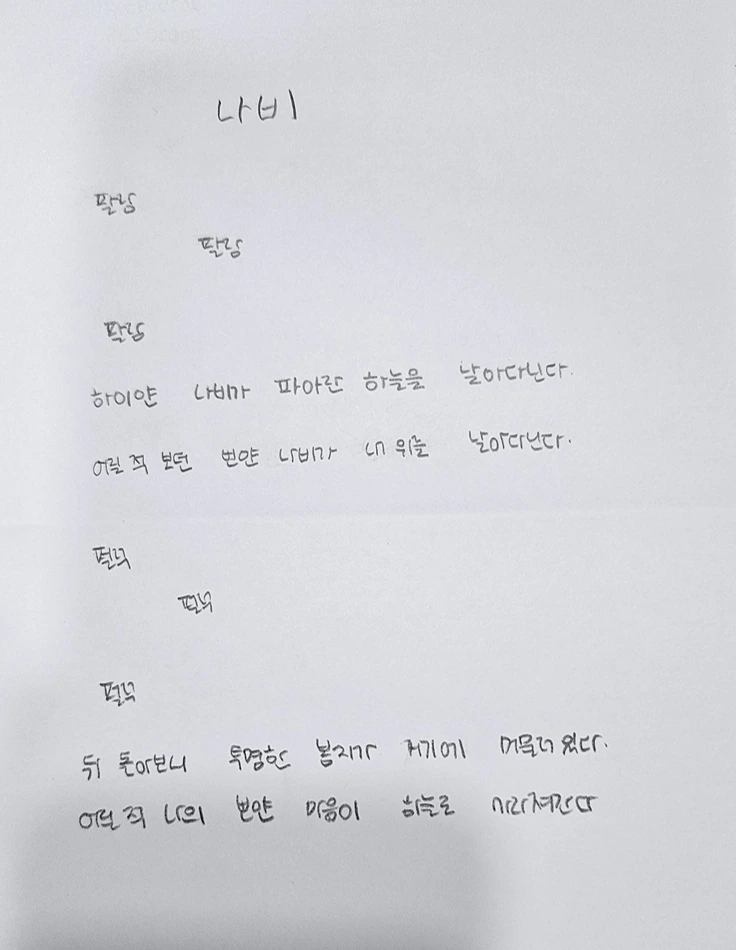 나비
팔랑
팔랑
팔랑
하이얀 나비가 파아란 하늘을 날아다닌다.
어릴 적 보던 뽀얀 나비가 내 위를 날아다닌다.
펄럭
펄럭
펄럭
뒤 돌아보니 투명한 봉지가 거기에 머물러 있다.
어릴 적 나의 뽀얀 마음이 하늘로 사라져간다